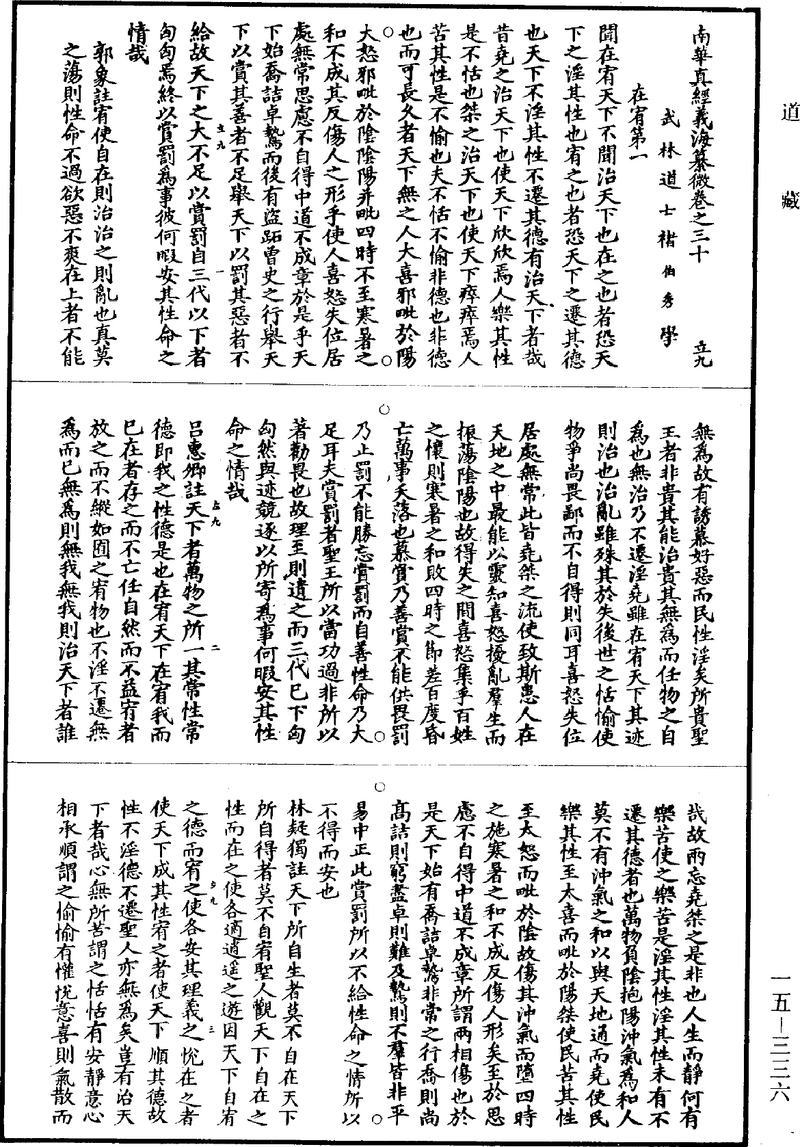 道藏
南華真經義海纂微卷之三十 立九
武林道士褚伯秀學
在宥第一
聞在宥天下不聞治天下也在之也者恐天
下之淫其性也宥之也者恐天下之遷其德
也天下不淫其性不遷其德有治天下者哉
昔堯之治天下也使天下欣欣焉人樂其性
是不恬也桀之治天下也使天下瘁瘁焉人
苦其性是不愉也夫不恬不愉非德也非德
也而可長久者天下無之人大喜邪毗於陽
大怒邪毗於陰陰陽并毗四時不至寒暑之
和不成其反傷人之形乎使人喜怒失位居
處無常思慮不自得中道不成章於是乎天
下始喬詰卓鷙而後有盜跖曾史之行舉天
下以賞其善者不足舉天下以罰其惡者不
給故天下之大不足以賞罰自三代以下者
匈匈焉終以賞罰為事彼何暇安其性命之
情哉
郭象註宥使自在則治治之則亂也真莫
之蕩則性命不過欲惡不爽在上者不能
立九 一
無為故有誘慕好惡而民性淫矣所貴聖
王者非貴其能治貴其無為而任物之自
為也無治乃不遷淫堯雖在宥天下其迹
則治也治亂雖殊其於失後世之恬愉使
物爭尚畏鄙而不自得則同耳喜怒失位
居處無常此皆堯桀之流使致斯患人在
天地之中最能以靈知喜怒擾亂羣生而
振蕩陰陽也故得失之間喜怒集乎百姓
之懷則寒暑之和敗四時之節差百度昏
亡萬事夭落也慕賞乃善賞不能供畏罰
乃止罰不能勝忘賞罰而自善性命乃大
足耳夫賞罰者聖王所以當功過非所以
著勸畏也故理至則遺之而三代已下匈
匈然與迹競逐以所寄為事何暇安其性
命之情哉
呂惠卿註天下者萬物之所一其常性常
德即我之性德是也在宥天下在宥我而
已在者存之而不亡任自然而不益宥者
放之而不縱如囿之宥物也不淫不遷無
為而已無為則無我無我則治天下者誰
立九 二
哉故兩忘堯桀之是非也人生而靜何有
樂苦使之樂苦是淫其性淫其性未有不
遷其德者也萬物負陰抱陽沖氣為和人
莫不有沖氣之和以與天地通而堯使民
樂其性至太喜而毗於陽桀使民苦其性
至太怒而毗於陰故傷其沖氣而墮四時
之施寒暑之和不成反傷人形矣至於思
慮不自得中道不成章所謂兩相傷也於
是天下始有喬詰卓鷙非常之行喬則尚
高詰則窮盡卓則難及鷙則不羣皆非平
易中正此賞罰所以不給性命之情所以
不得而安也
林疑獨註天下所自生者莫不自在天下
所自得者莫不自宥聖人觀天下自在之
性而在之使各適逍遙之遊因天下自宥
之德而宥之使各安其理義之悅在之者
使天下成其性宥之者使天下順其德故
性不淫德不遷聖人亦無為矣豈有治天
下者哉心無所苦謂之恬恬有安靜意心
相承順謂之愉愉有懽悅意喜則氣散而
立九 三
一五—三三六